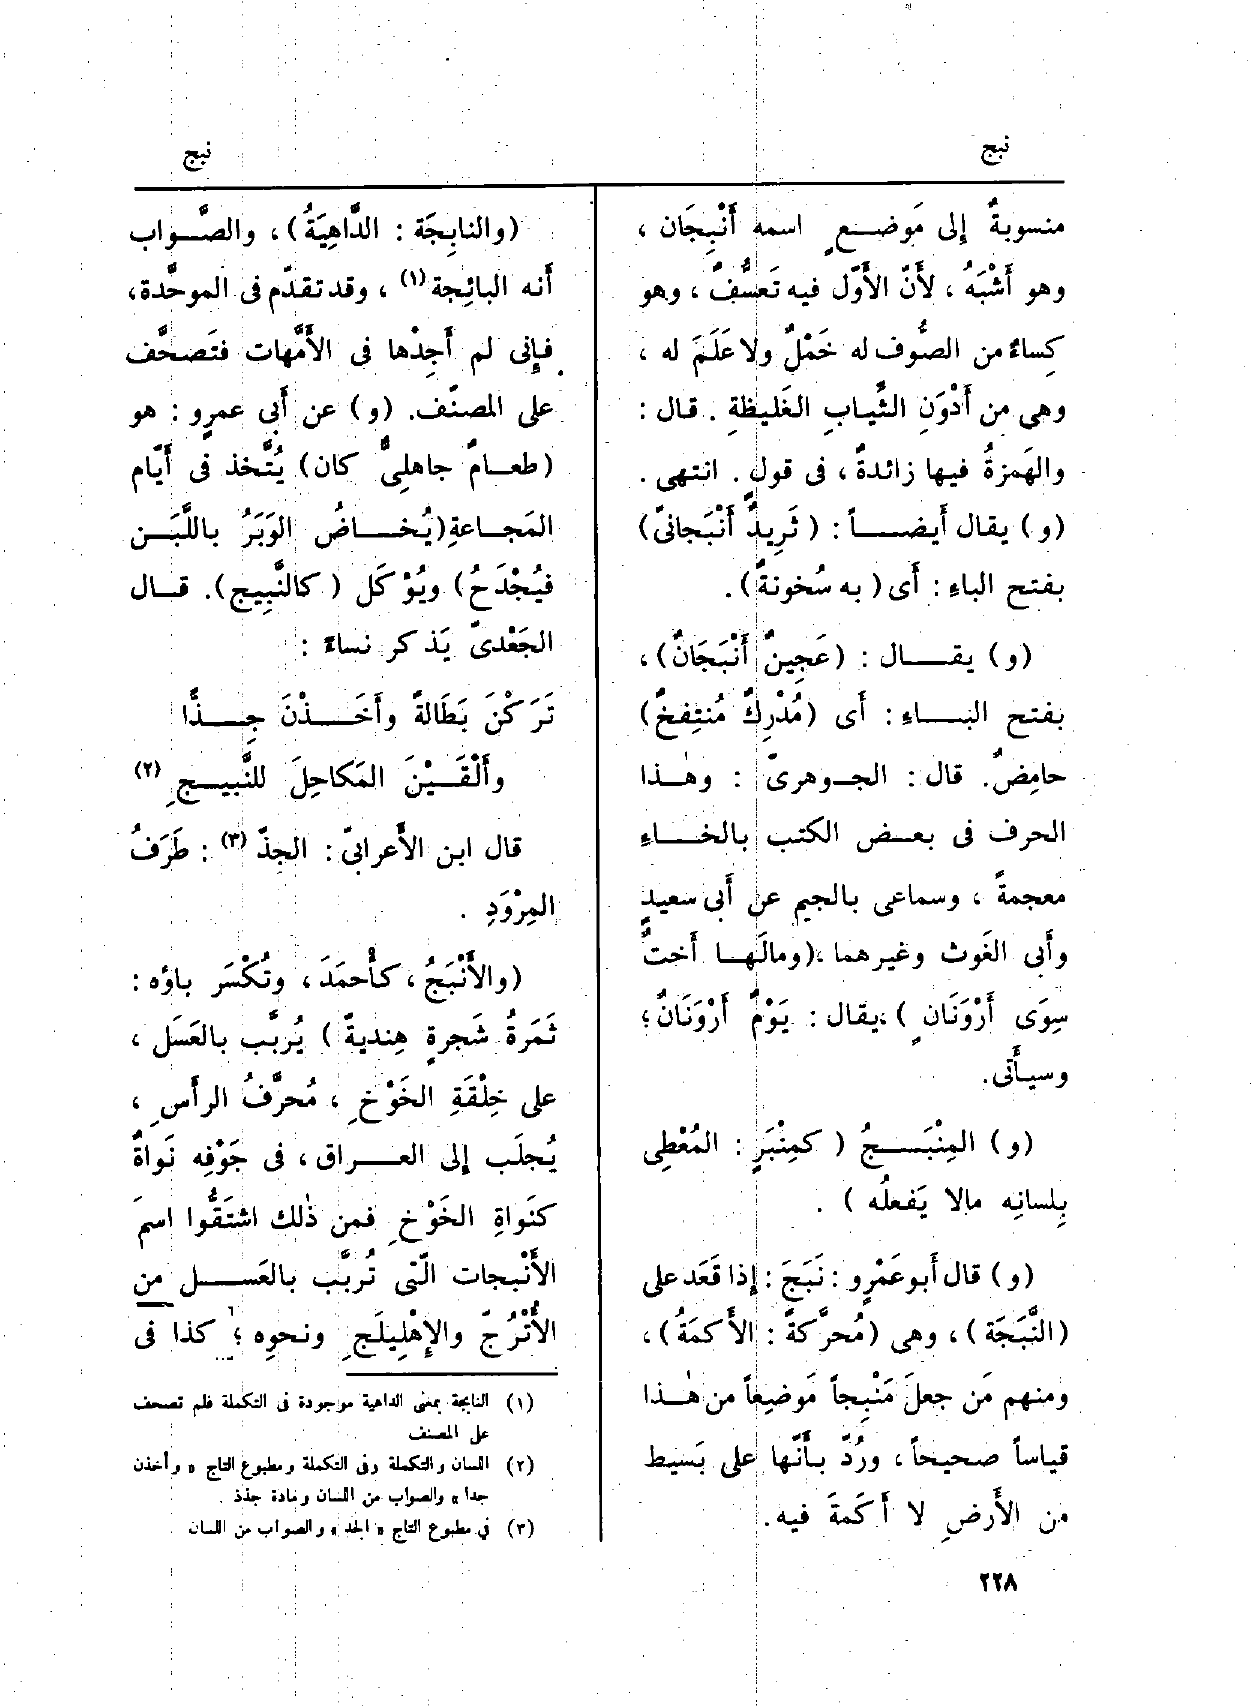 نبج
نبج
منسوبةٌ إلى مَوضعٍ اسمه أَنْبِجَان ،
وهو أَشْبَهُ ، لأَنّ الأَوّل فيه تَعسُّفٌ ، وهو
كِساءٌ من الصُّوف له خَمْلٌ ولا عَلَمَ له ،
وهى من أَدْوَنِ الثِّيابِ الغَليظةِ . قال :
والهَمزةُ فيها زائدةٌ ، فى قول . انتهى .
(و) يقال أَيضـاً : ( ثَرِيدٌ أَنْبَجَانىٌّ)
بفتح الباءِ : أَى ( به سُخونةٌ) .
(و) يقـال : (عَجِينٌ أَنْبَجَانٌ) ،
بفتح البـاءِ : أَى (مُدْرِكٌ مُنتِفخٌ)
حامِضٌ. قال : الجـوهرىّ : وهٰـذا
الحرف فى بعـض الكتب بالخـاءِ
معجمةً ، وسماعى بالجيم عن أَبى سعيدٍ
وأَبى الغَوث وغيرهما ،(ومالَهـا أُختٌ
سِوَى أَرْوَنَانٍ ) ،يقال : يَوْمٌ أَرْوَنَانٌ ؛
وسيأْتى.
(و) المِنْبَـجُ ( كمِنْبَرٍ : المُعْطِى
بِلسانِه مالا يَفعلُه ) .
(و) قال أَبو عَمْرٍو : نَبَجَ : إِذا قَعَد على
(النَّبَجَة) ، وهى (مُحرَّكةً : الأَكمَةُ) ،
ومنهم مَن جعلَ مَنْبِجاً مَوضِعاً من هٰـذا
قياساً صحيحاً ، ورُدَّ بأَنّها على بَسيط
من الأَرضِ لا أَكَمَةَ فيه.
(والنابِجَة : الدَّاهِيَةُ) ، والصَّواب
أَنه البائِجة(١) ، وقد تقدّم فى الموحَّدة،
فإِنى لم أَجِدْها فى الأُمّهات فتَصحَّف
على المصنّف. (و) عن أَبى عمرٍو : هو
(طعـامٌ جاهلِىٌّ كان) يُتَّخذ فى أَيّام
المَجـاعةِ(يُخـاضُ الوَبَرُ باللَّبَـن
فيُجْدَحُ) ويُؤْكَل ( كالنَّبِيج). قـال
الجَعْدىّ يَذكر نساءً :
تَرَكْنَ بَطَالةً وأَخَـذْنَ جِـذًّا
وأَلْقَـيْنَ المَكاحِلَ للنَّبيـجِ (٢)
قال ابن الأَعرابىّ : الجِذّ (٣) : طَرَفُ
المِرْوَدِ .
(والأَنْبَجُ ، كأَحمَدَ ، وتُكْسَر باؤه :
ثَمَرةُ شَجرةٍ هِنديةٌ) يُربَّب بالعَسَل ،
على خِلْقَةِ الخَوْخِ ، مُحرَّفُ الرأْسِ ،
يُجلَب إلى العـراق ، فى جَوْفِه نَواةٌ
كنَواةِ الخَوْخِ فمن ذٰلك اشتَقُّوا اسمَ
الأَنْبِجات الّتى تُربَّب بالعَسـل من
الأُتْرُجّ والإِهْلِيلَجِ ونحوِه ؛ كذا فى
(١) النابجة بمعنى الداهية موجودة فى التكملة فلم تصحف
على المصنف
(٢) اللسان والتكملة وفى التكملة ومطبوع التاج « وأخذن
جدا » والصواب من اللسان ومادة جذذ .
(٣) فى مطبوع التاج « الجد » والصواب من اللسان
٢٢٨